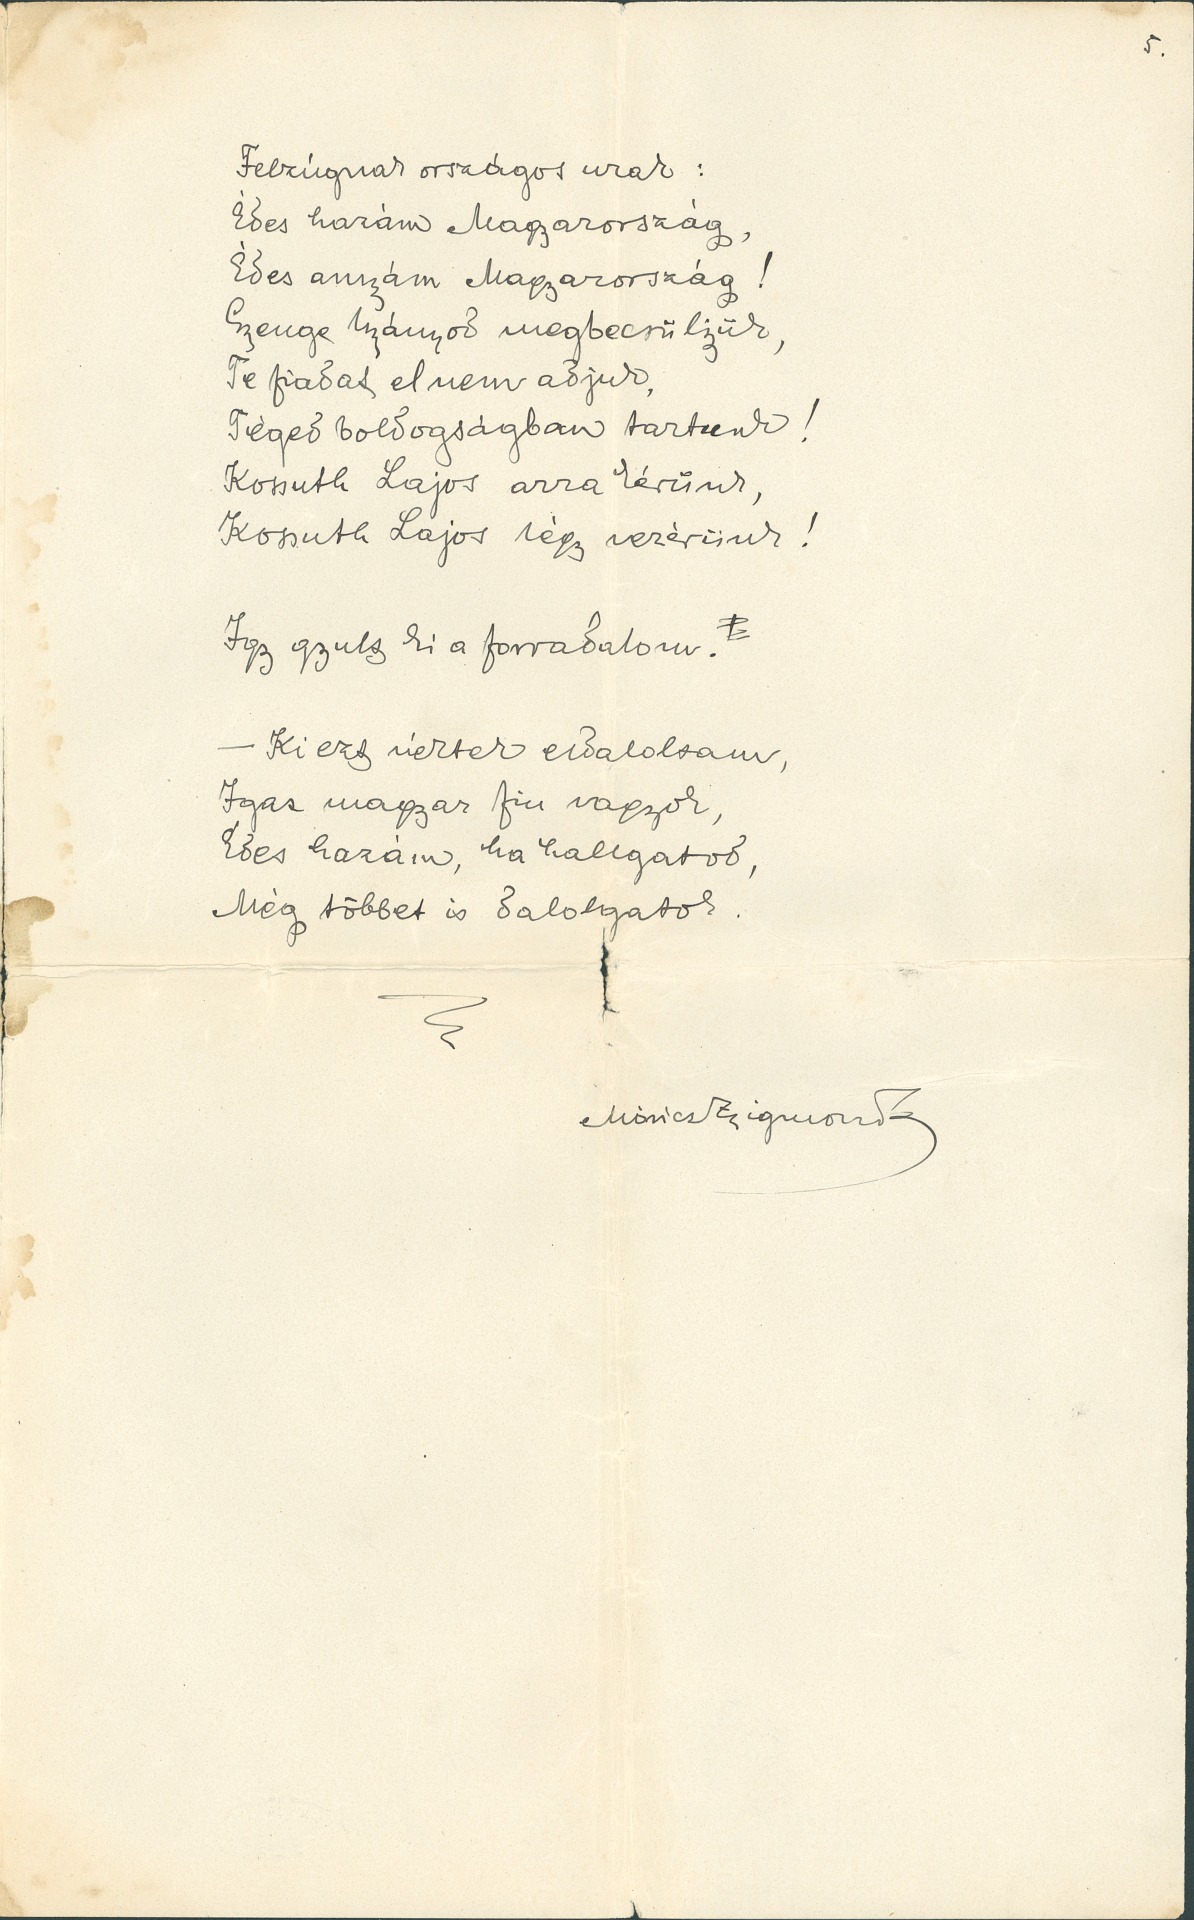 5.
Felzúgnak országos urak :
Édes hazám Magyarország,
Édes anyám Magyarország !
Gyenge lyányod megbecsüljük,
Te fiadat el nem adjuk,
Téged boldogságban tartunk !
Kossuth Lajos arra kérünk,
Kossuth Lajos légy vezérünk !
Igy gyult ki a forradalom.
— Ki ezt néktek eldaloltam,
Igaz magyar fiu vagyok,
Édes hazám, ha hallgatod,
Még többet is dalolgatok.
Móricz Zsigmond